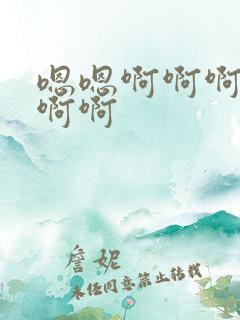 嗯嗯啊啊啊
啊啊
詹妮
未经同意禁止转载